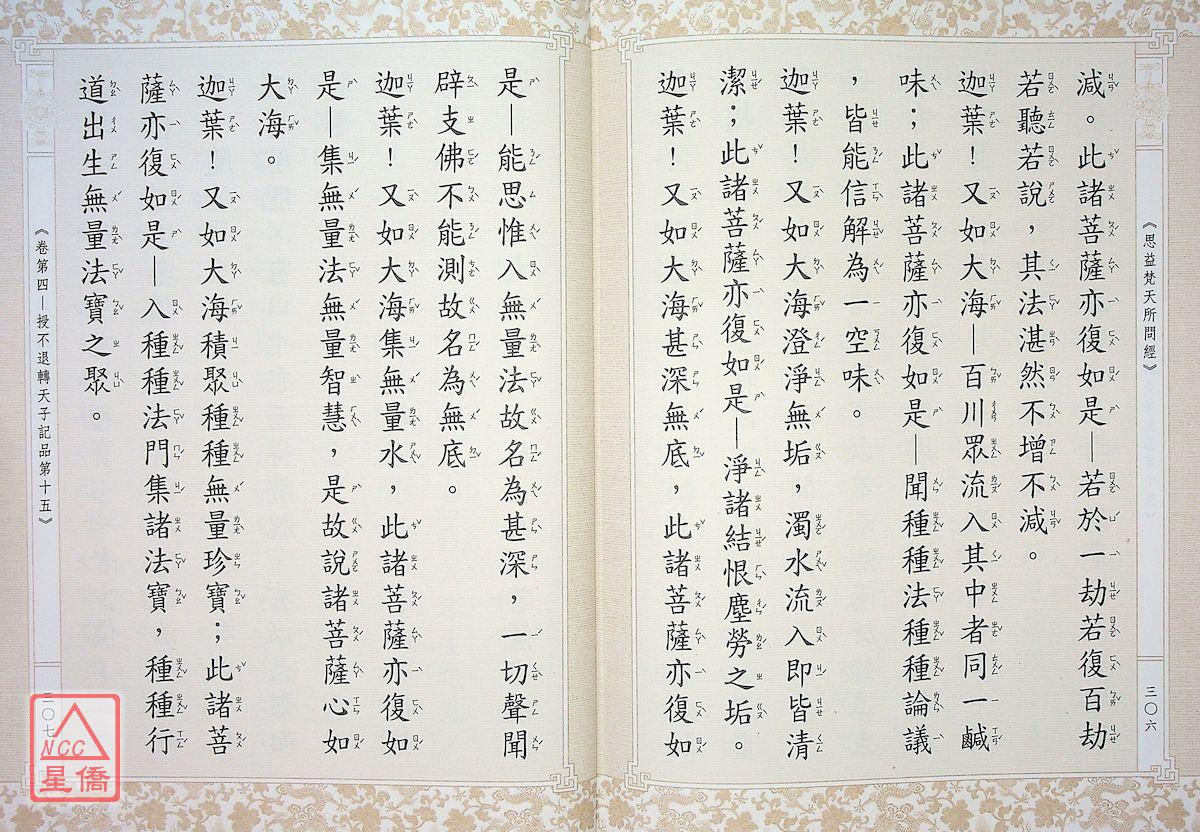 《思益梵天所問經》
三〇六
減。此諸菩薩亦復如是—若於一劫若復百劫
若聽若說，其法湛然不增不減。
迦葉！又如大海—百川眾流入其中者同一鹹
味；此諸菩薩亦復如是—聞種種法種種論議
，皆能信解為一空味。
迦葉！又如大海澄淨無垢，濁水流入即皆清
潔；此諸菩薩亦復如是—淨諸結恨塵勞之垢。
迦葉！又如大海甚深無底，此諸菩薩亦復如
是—能思惟入無量法故名為甚深，一切聲聞
辟支佛不能測故名為無底。
迦葉！又如大海集無量水，此諸菩薩亦復如
是—集無量法無量智慧，是故說諸菩薩心如
大海。
迦葉！又如大海積聚種種無量珍寶；此諸菩
薩亦復如是—入種種法門集諸法寶，種種行
道出生無量法寶之聚。
《卷第四—授不退轉天子記品第十五》
三〇七
NCC
星僑